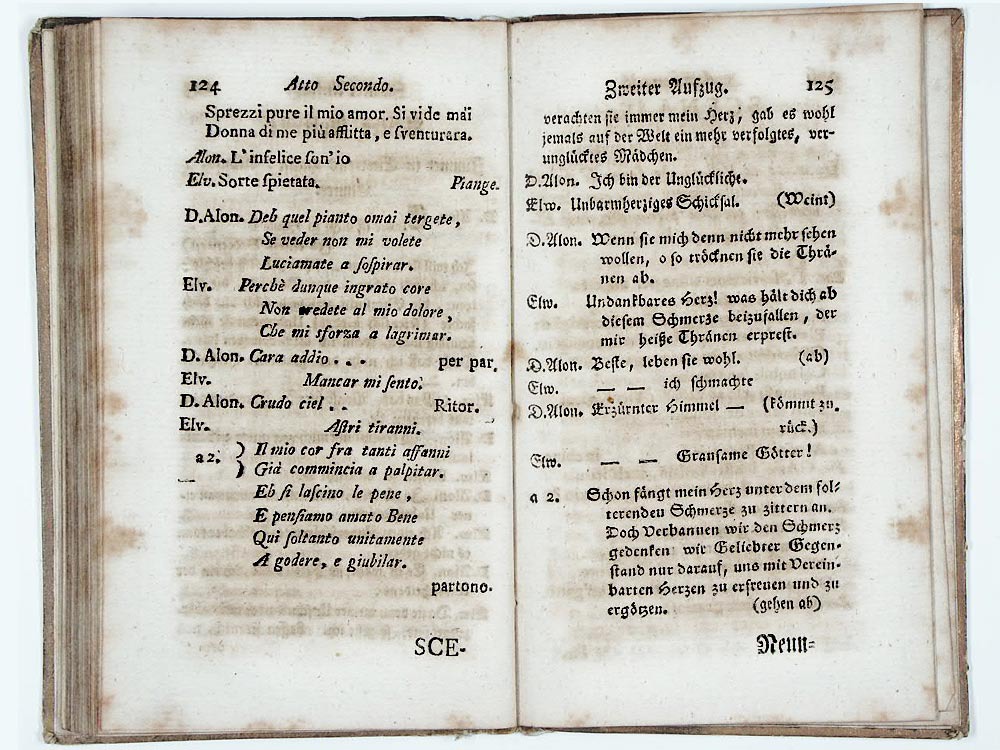 124 Atto Secondo.
Sprezzi pure il mio amor. Si vide mai
Donna di me più afflitta, e ſventurara.
Alon. L'infelice ſon' io
Elv. Sorte ſpietata. Piange.
D.Alon. Deh quel pianto omai tergete,
Se veder non mi volete
Luciamate a ſoſpirar.
Elv. Perchè dunque ingrato core
Non credete al mio dolore,
Che mi sforza a lagrimar.
D. Alon. Cara addio . . . per par.
Elv. Mancar mi ſento.
D. Alon. Crudo ciel . . Ritor.
Elv. Aſtri tiranni.
a 2. ) Il mio cor fra tanti affanni
) Già commincia a palpitar.
Eh ſi laſcino le pene,
E penſiamo amato Bene
Qui ſoltanto unitamente
A godere, e giubilar.
partono.
SCE-
Zweiter Aufzug. 125
verachten ſie immer mein Herz, gab es wohl
jemals auf der Welt ein mehr verfolgtes, ver-
unglücktes Mädchen.
D.Alon. Ich bin der Unglückliche.
Elw. Unbarmherziges Schickſal. (Weint)
D.Alon. Wenn ſie mich denn nicht mehr ſehen
wollen, o ſo tröcknen ſie die Thrä-
nen ab.
Elw. Undankbares Herz! was hält dich ab
dieſem Schmerze beizufallen, der
mir heiße Thränen erpreſt.
D.Alon. Beſte, leben ſie wohl. (ab)
Elw. — — ich ſchmachte
D.Alon. Erzürnter Himmel — (kömmt zu-
rück.)
Elw. — — Grauſame Götter!
a 2. Schon fängt mein Herz unter dem fol-
terenden Schmerze zu zittern an.
Doch verbannen wir den Schmerz
gedenken wir Geliebter Gegen-
ſtand nur darauf, uns mit verein-
barten Herzen zu erfreuen und zu
ergötzen. (gehen ab)
Neun-